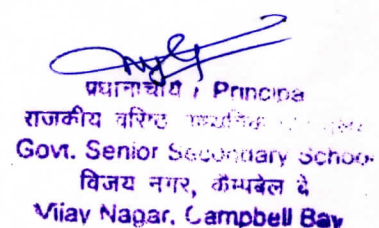 प्रधानाचार्य / Principa
राजकीय वरिष्ठ
Govt. Senior Secondary School
विजय नगर, कॅम्पबेल बे
Vijay Nagar, Campbell Bay